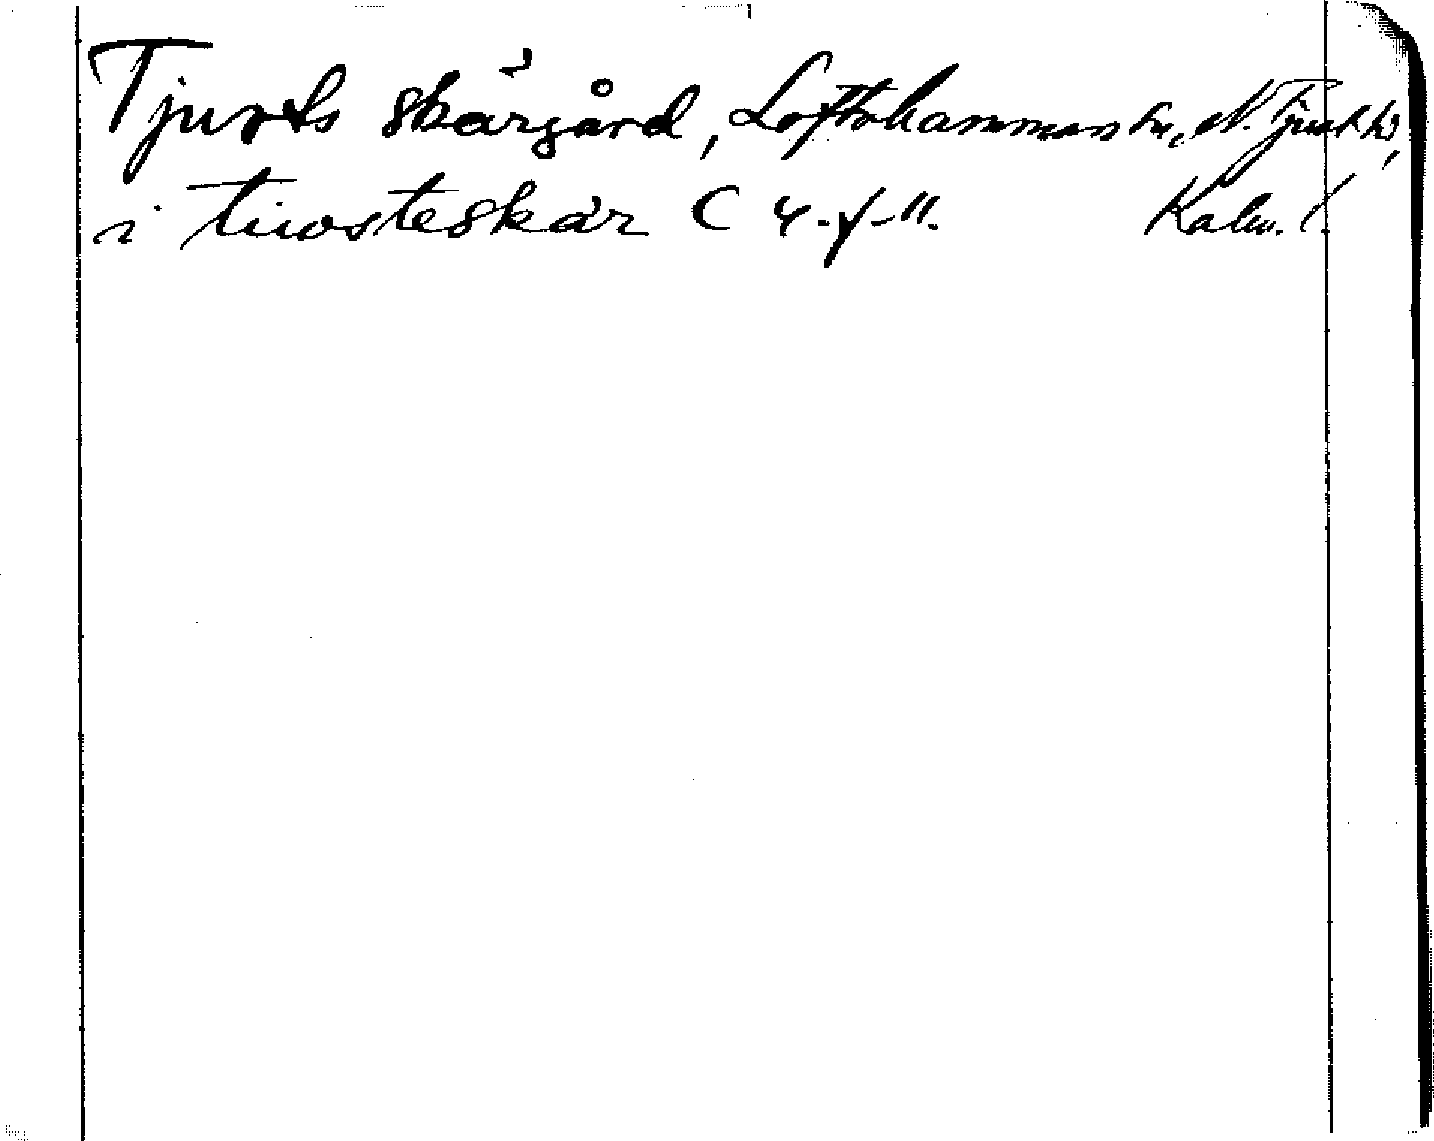 Tjusts skärgård, Loftahammars sn, N. Tjust hd,
i tiwosteskär C 4. f. 11. Kalm. l.